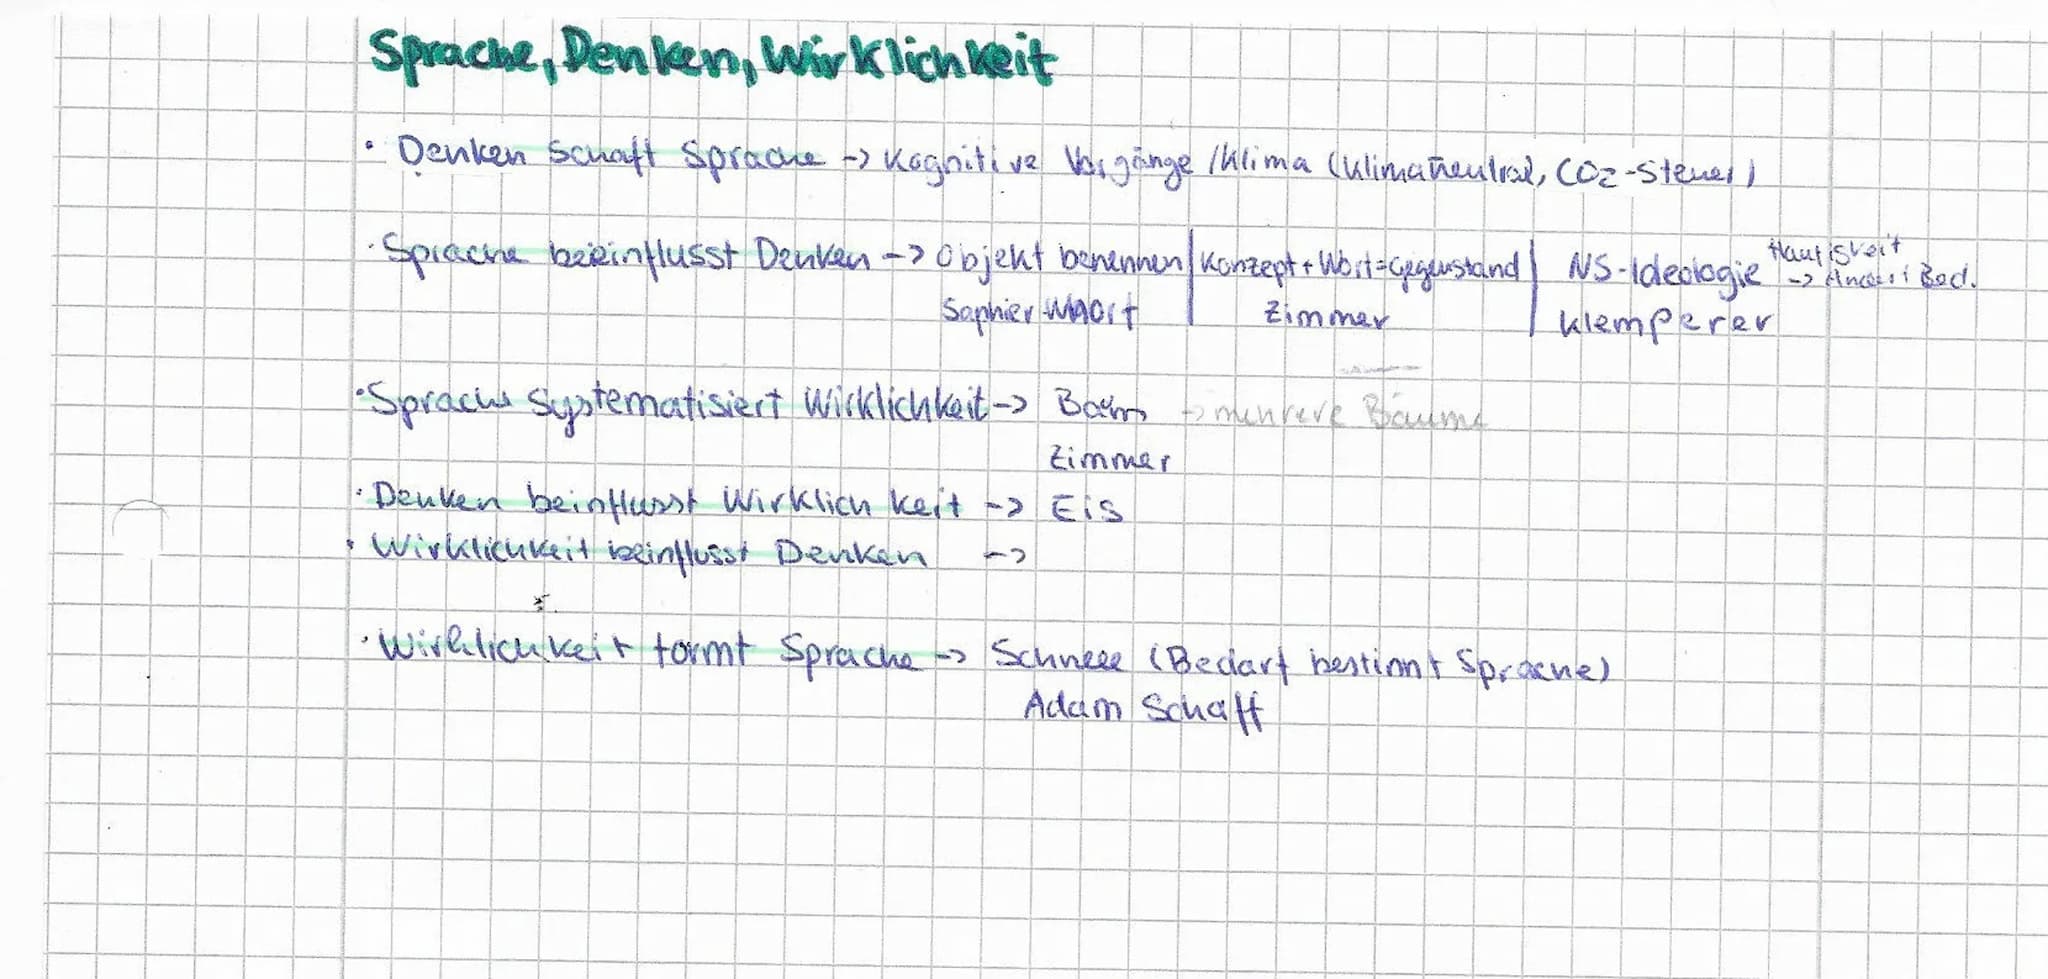 Sprache, Denken, Wirklichkeit
• Denken schaft Sprache -> Kognitive Vorgänge / Klima (Klimaneutral, CO2-Steuer)
• Sprache beeinflusst Denken -> Objekt benennen | Konzept + Wort = Gegenstand | NS-Ideologie
Saphier Zimmer Klemperer
• Sprache systematisiert Wirklichkeit -> Baum -> mehrere Bäume
Zimmer
• Denken beinflusst Wirklichkeit -> Eis
• Wirklichkeit beinflusst Denken ->
• Wirklichkeit formt Sprache -> Schneee (Bedarf bestimmt Sprache)
Adam Schaff